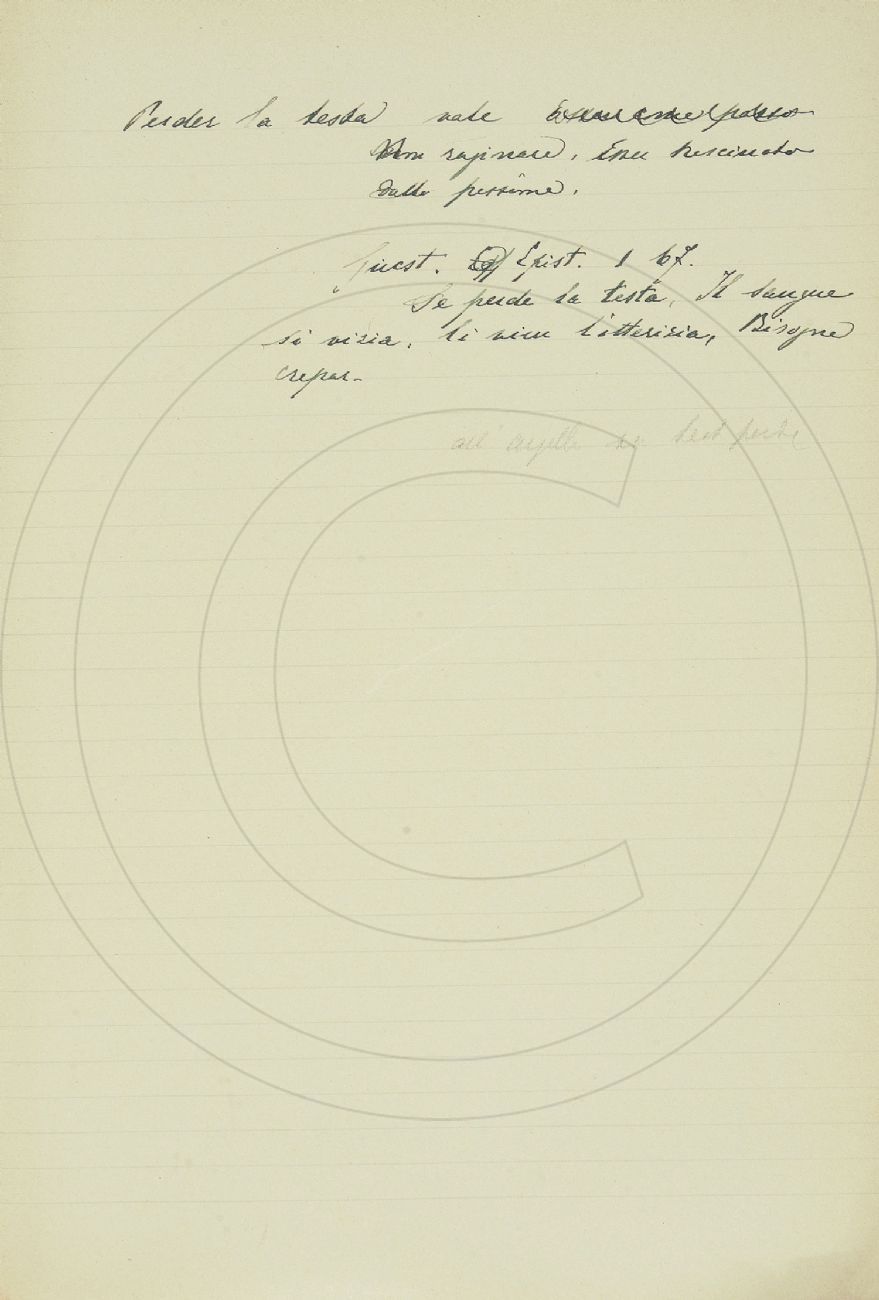 Perder la testa vale Essere come pazzo
Non raginare. Esser trascinato
dalle passione.
Giust. Epist. 1 67.
Se perde la testa, Il sangue
si vizia, li vien l'itterizia, Bisogna
crepar.
all' test perde